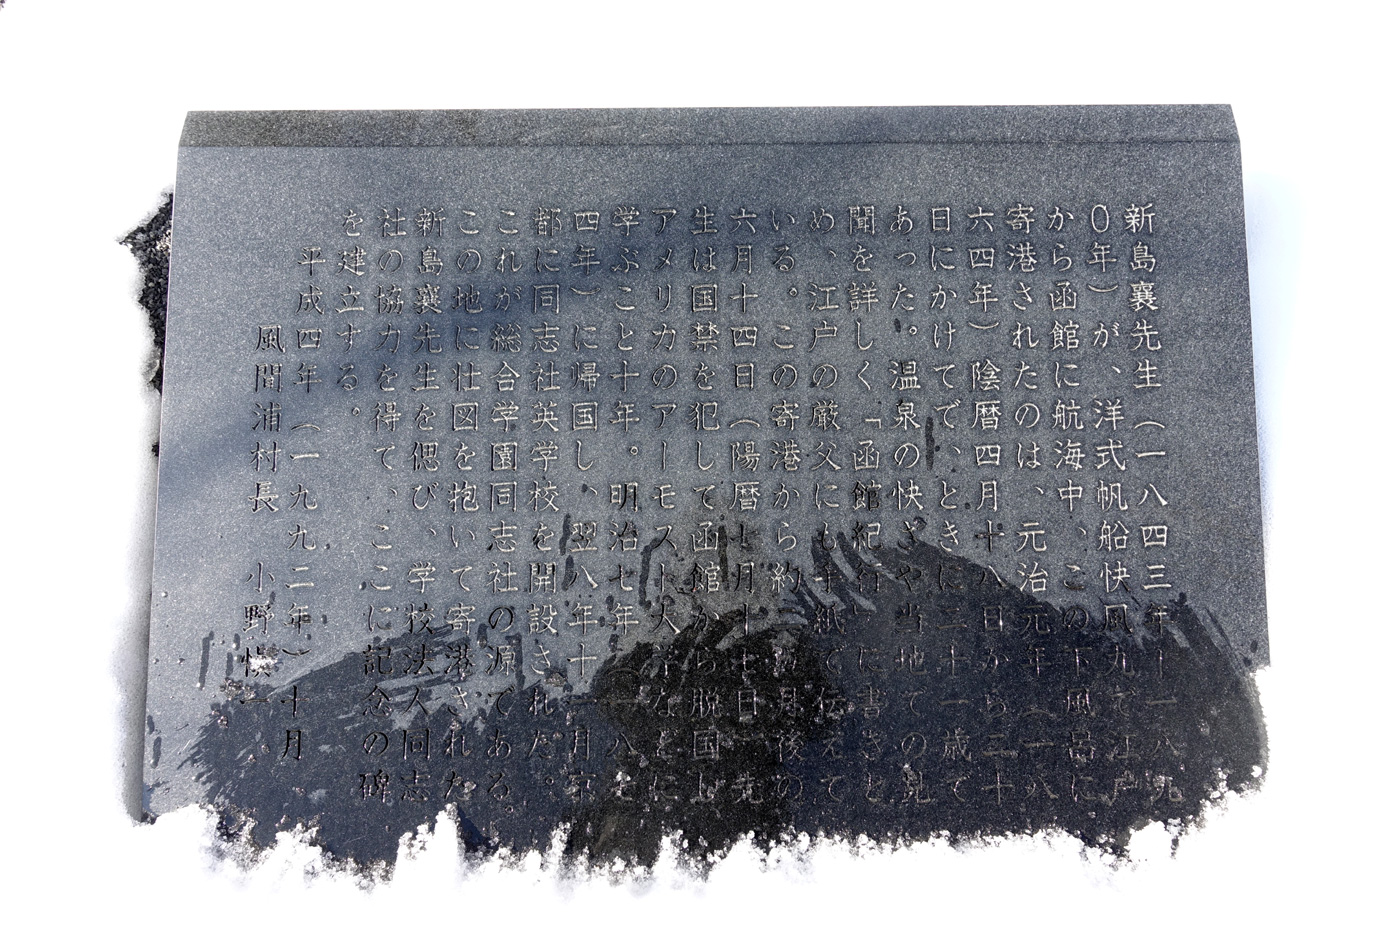 新島襄先生（一八四三年―一八九
〇年）が、洋式帆船快風丸で江戸
から函館に航海中、この下風呂に
寄港されたのは、元治元年（一八
六四年）陰暦四月十八日から二十
日にかけてで、ときに二十一歳で
あった。温泉の快さや当地での見
聞を詳しく「函館紀行」に書きと
め、江戸の厳父にも手紙で伝えて
いる。この寄港から約二ヵ月後の
六月十四日（陽暦七月十七日）先
生は国禁を犯して函館から脱国し
アメリカのアーモスト大学などに
学ぶこと十年。明治七年（一八七
四年）に帰国し、翌八年十一月京
都に同志社英学校を開設された。
これが総合学園同志社の源である。
この地に壮図を抱いて寄港された
新島襄先生を偲び、学校法人同志
社の協力を得て、ここに記念の碑
を建立する。
平成四年（一九九二年）十月
風間浦村長 小野慎一